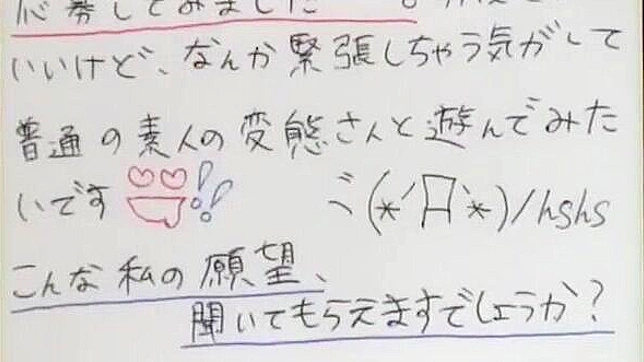 応募してみました
いいけど、なんか緊張しちゃう気がして
普通の素人の変態さんと遊んでみた
いです!!
ミ(*´Д`*)/hshs
こんな私の願望、
聞いてもらえますでしょうか?